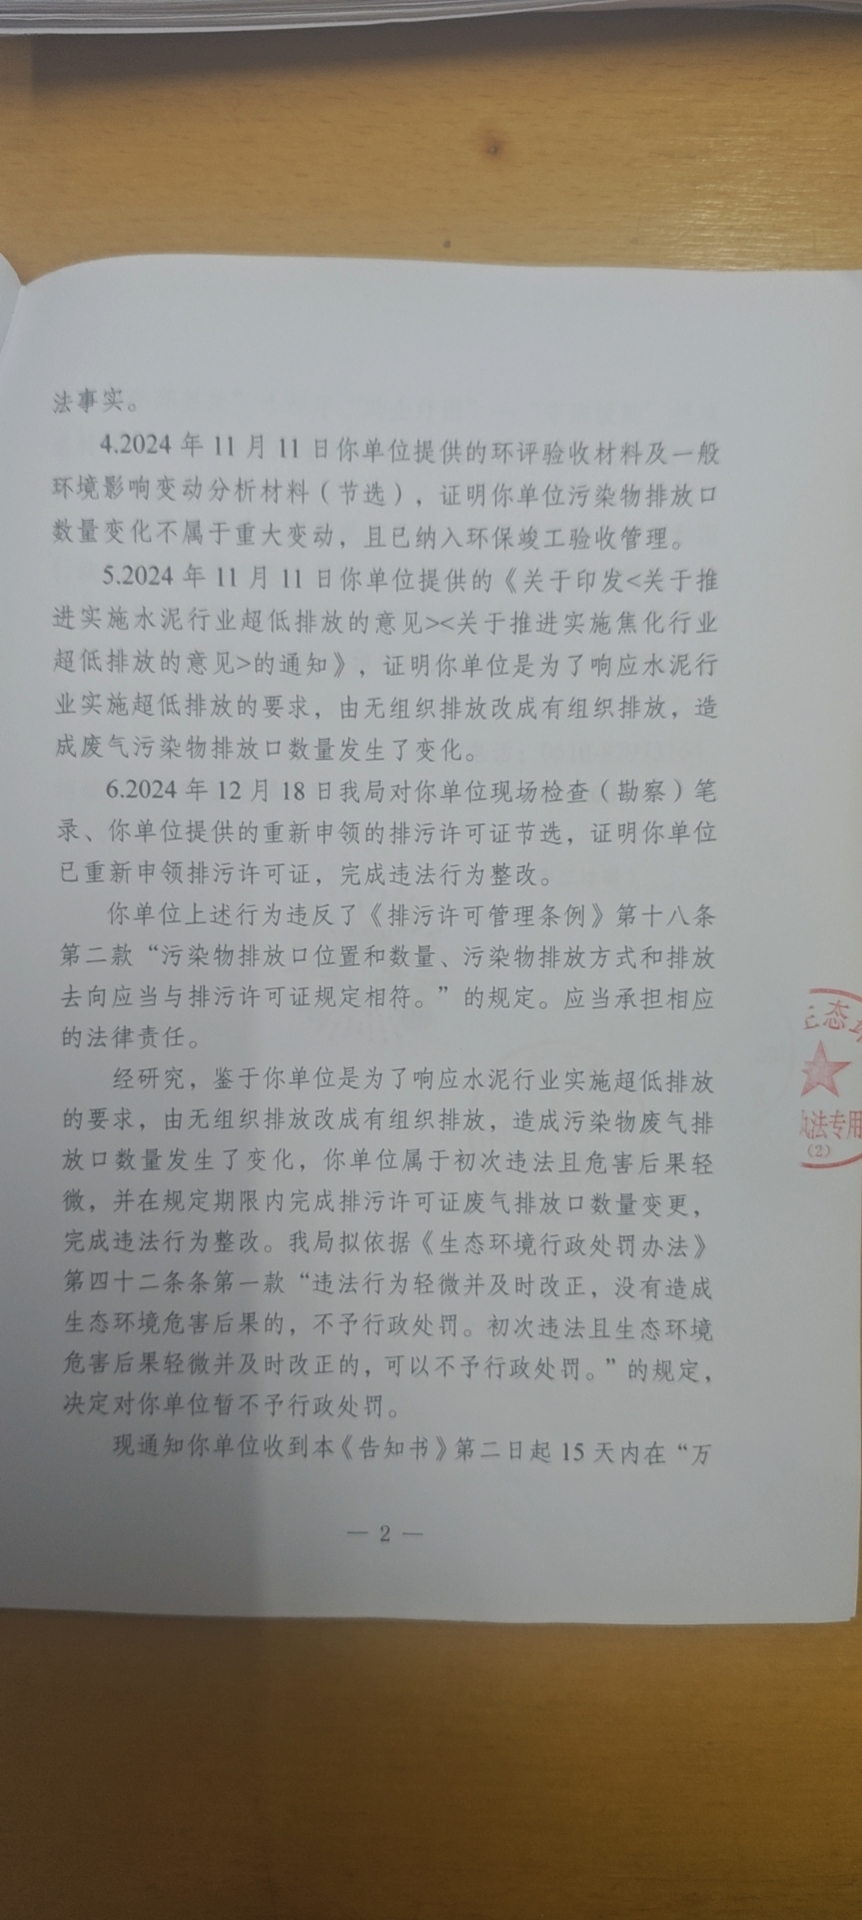 法事实。
4.2024 年 11 月 11 日你单位提供的环评验收材料及一般
环境影响变动分析材料（节选），证明你单位污染物排放口
数量变化不属于重大变动，且已纳入环保竣工验收管理。
5.2024 年 11 月 11 日你单位提供的《关于印发<关于推
进实施水泥行业超低排放的意见><关于推进实施焦化行业
超低排放的意见>的通知》，证明你单位是为了响应水泥行
业实施超低排放的要求，由无组织排放改成有组织排放，造
成废气污染物排放口数量发生了变化。
6.2024 年 12 月 18 日我局对你单位现场检查（勘察）笔
录、你单位提供的重新申领的排污许可证节选，证明你单位
已重新申领排污许可证，完成违法行为整改。
你单位上述行为违反了《排污许可管理条例》第十八条
第二款“污染物排放口位置和数量、污染物排放方式和排放
去向应当与排污许可证规定相符。”的规定。应当承担相应
的法律责任。
经研究，鉴于你单位是为了响应水泥行业实施超低排放
的要求，由无组织排放改成有组织排放，造成污染物废气排
放口数量发生了变化，你单位属于初次违法且危害后果轻
微，并在规定期限内完成排污许可证废气排放口数量变更，
完成违法行为整改。我局拟依据《生态环境行政处罚办法》
第四十二条条第一款“违法行为轻微并及时改正，没有造成
生态环境危害后果的，不予行政处罚。初次违法且生态环境
危害后果轻微并及时改正的，可以不予行政处罚。”的规定，
决定对你单位暂不予行政处罚。
现通知你单位收到本《告知书》第二日起 15 天内在“万
— 2 —
态
法专用
(2)